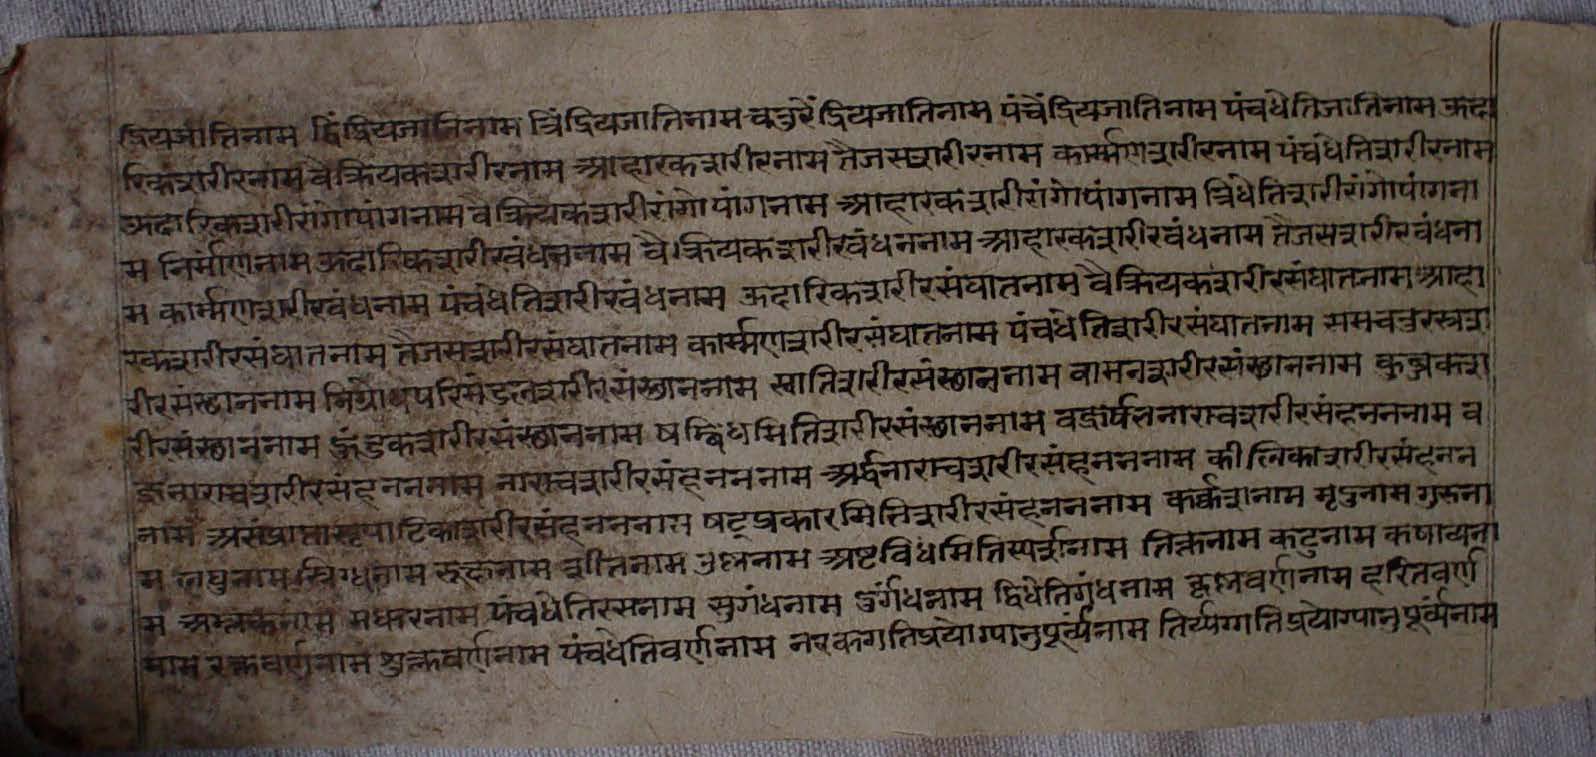 द्रियजातिनाम द्विंद्रियजातिनाम त्रिंद्रियजातिनाम चतुरेंद्रियजातिनाम पंचेंद्रियजातिनाम पंचधेतिजातिनाम ऊदा
रिकशरीरनाम वैक्रियकशरीरनाम आहारकशरीरनाम तैजसशरीरनाम कार्म्मणशरीरनाम पंचधेतिशरीरनाम
ऊदारिकशरीरांगोपांगनाम वैक्रियकशरीरांगोपांगनाम आहारकशरीरांगोपांगनाम त्रिधेतिशरीरांगोपांगना
म निर्माणनाम ऊदारिकशरीरबंधननाम वैक्रियकशरीरबंधननाम आहारकशरीरबंधनाम तैजसशरीरबंधना
म कार्म्मणशरीरबंधनाम पंचधेतिशरीरबंधनाम ऊदारिकशरीरसंघातनाम वैक्रियकशरीरसंघातनाम आहा
रकशरीरसंघातनाम तैजसशरीरसंघातनाम कार्म्मणशरीरसंघातनाम पंचधेतिशरीरसंघातनाम समचतुरस्रश
रीरसंस्थाननाम निग्रोधपरिमंडलशरीरसंस्थाननाम स्वातिशरीरसंस्थाननाम वामनशरीरसंस्थाननाम कुब्जकश
रीरसंस्थाननाम हुंडकशरीरसंस्थाननाम षड्विधमितिशरीरसंस्थाननाम वज्रर्षभनाराचशरीरसंहनननाम व
ज्रनाराचशरीरसंहनननाम नाराचशरीरसंहनननाम अर्द्धनाराचशरीरसंहनननाम कीलिकाशरीरसंहनन
नाम असंप्राप्तासृपाटिकाशरीरसंहनननाम षट्प्रकारमितिशरीरसंहनननाम कर्कशनाम मृदुनाम गुरुना
म लघुनाम स्निग्धनाम रूक्षनाम शीतनाम उष्णनाम अष्टविधमितिस्पर्शनाम तिक्तनाम कटुनाम कषायना
म अम्लकनाम मधुरनाम पंचधेतिरसनाम सुगंधनाम दुर्गंधनाम द्विधेतिगंधनाम कृष्णवर्णनाम हरितवर्ण
नाम रक्तवर्णनाम शुक्लवर्णनाम पंचधेतिवर्णनाम नरकगतिप्रयोग्यानुपूर्व्यनाम तिर्य्यग्गतिप्रयोग्यानुपूर्व्यनाम